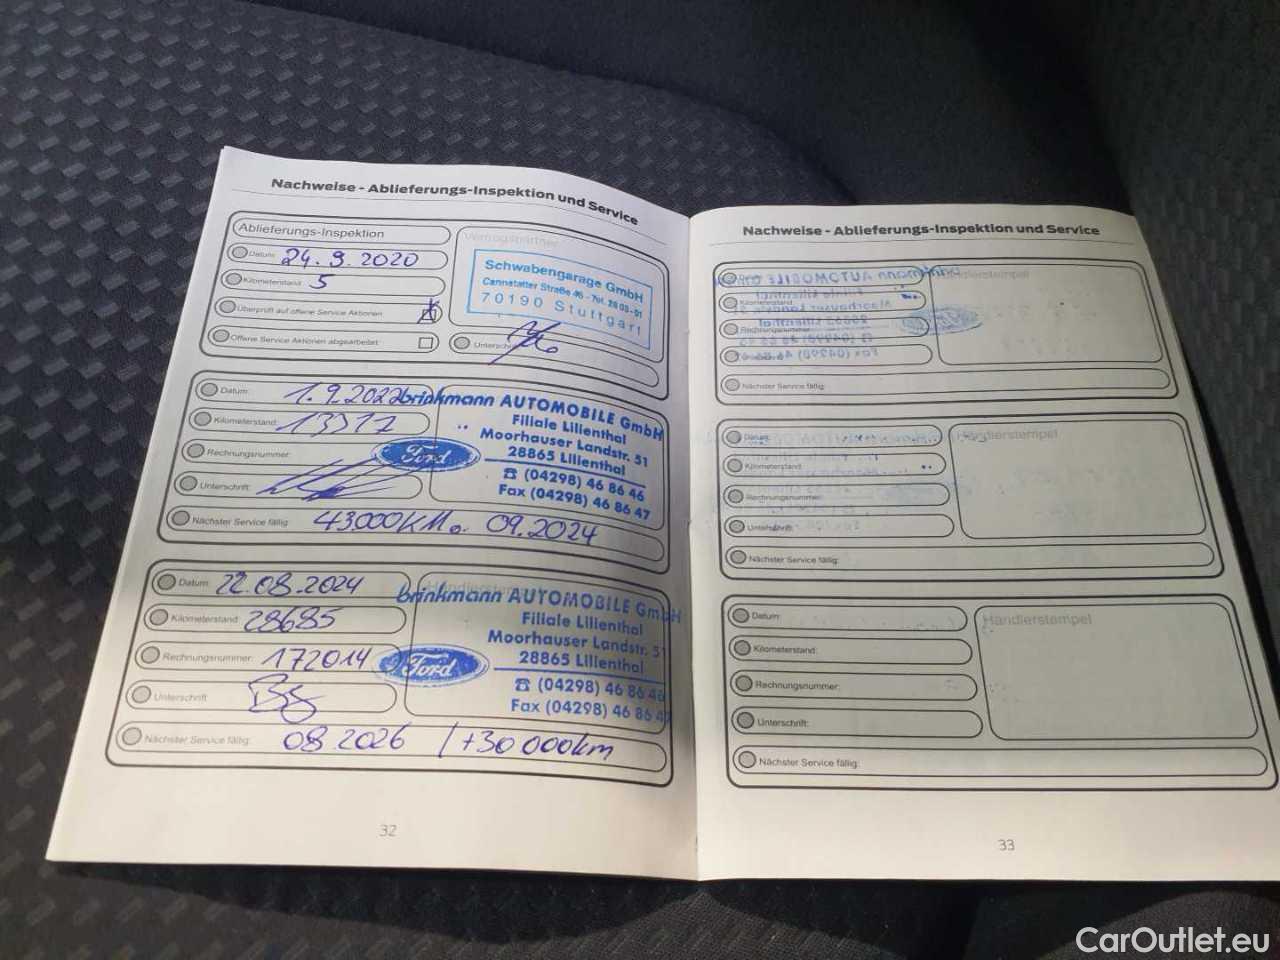 Nachweise - Ablieferungs-Inspektion und Service
Ablieferungs-Inspektion
Datum: 24.9.2020
Kilometerstand: 5
Überprüft auf offene Service Aktionen
Offene Service Aktionen abgearbeitet:
Vertragspartner
Schwabengarage GmbH
Cannstatter Straße 46 - Tel. 28 03-01
70190 Stuttgart
Unterschrift
Datum: 1.9.2022
Kilometerstand: 13377
Rechnungsnummer:
Unterschrift:
brinkmann AUTOMOBILE GmbH
Filiale Lilienthal
Moorhauser Landstr. 51
28865 Lilienthal
☎ (04298) 46 86 46
Fax (04298) 46 86 47
Ford
Nächster Service fällig: 43000KM o. 09.2024
Datum: 22.08.2024
Kilometerstand: 28685
Rechnungsnummer: 172014
Unterschrift:
Händlerstempel
brinkmann AUTOMOBILE GmbH
Filiale Lilienthal
Moorhauser Landstr. 51
28865 Lilienthal
☎ (04298) 46 86 46
Fax (04298) 46 86 47
Ford
Nächster Service fällig: 08.2026 / +30000km
32
Nachweise - Ablieferungs-Inspektion und Service
Kilometerstand:
Rechnungsnummer:
Händlerstempel
Nächster Service fällig:
Datum:
Kilometerstand:
Rechnungsnummer:
Unterschrift:
Händlerstempel
Nächster Service fällig:
Datum:
Kilometerstand:
Rechnungsnummer:
Unterschrift:
Händlerstempel
Nächster Service fällig:
33
CarOutlet.eu